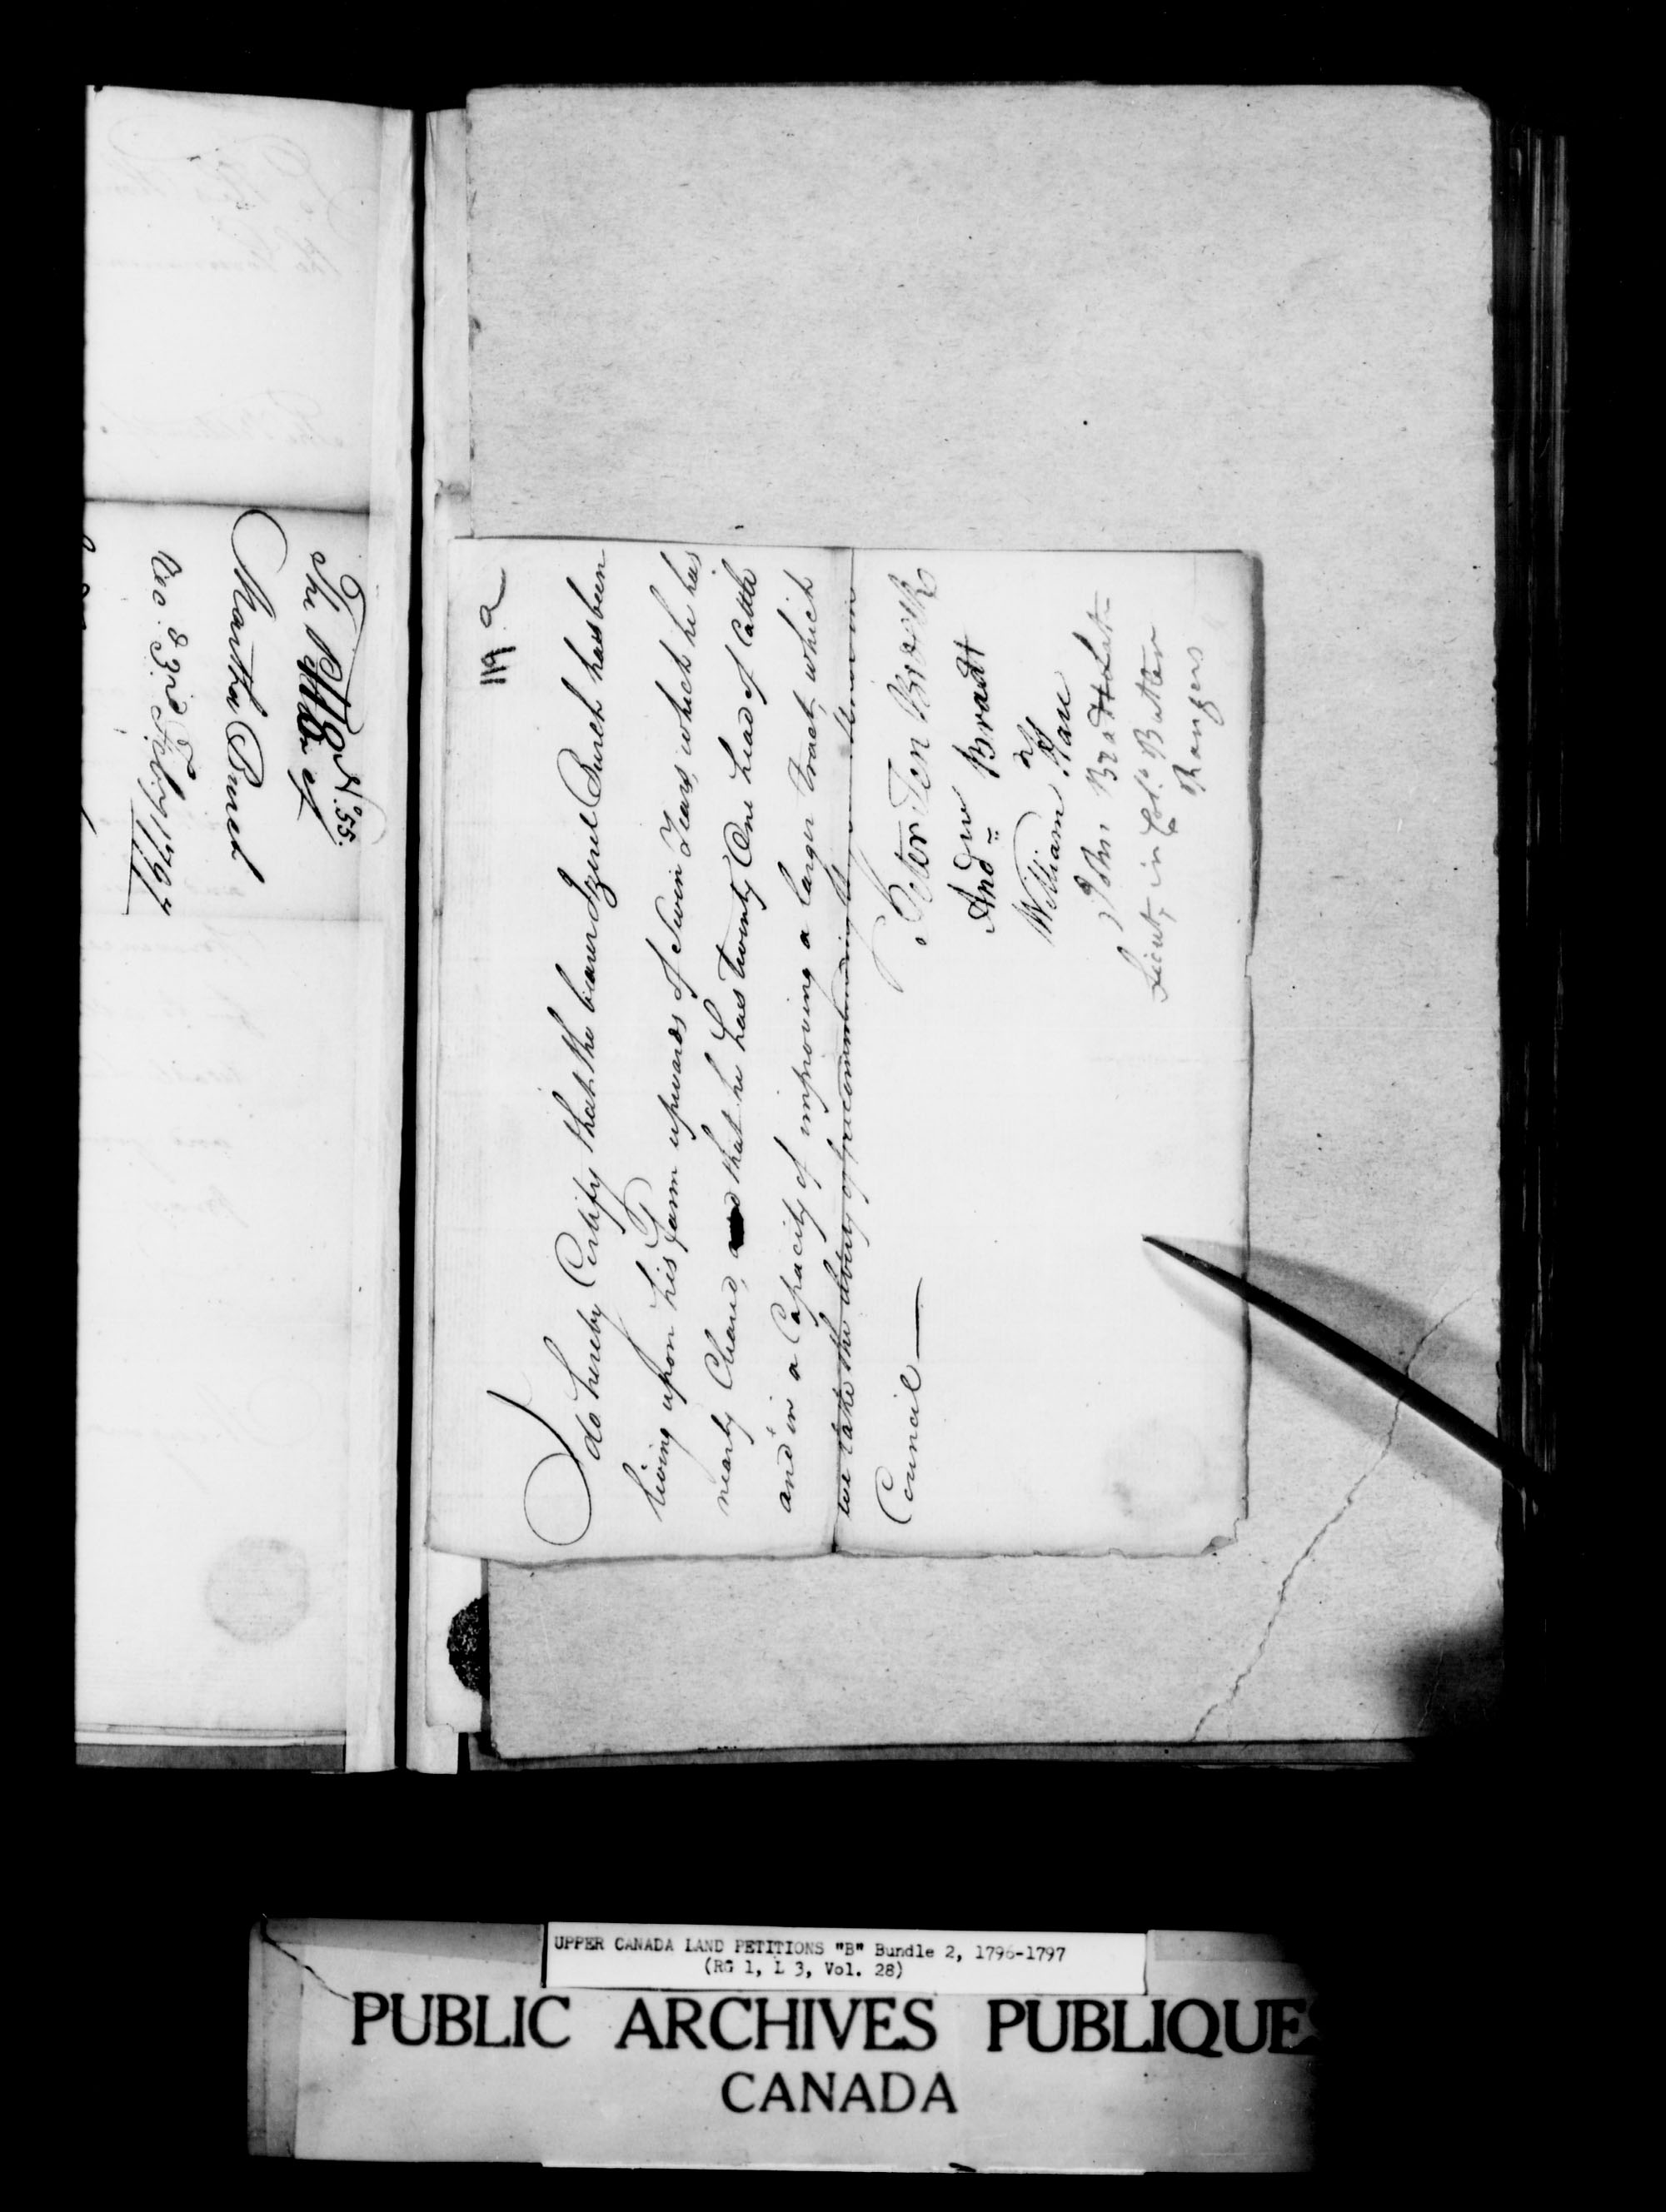 No. 55.
The Petition of
Martha Buneh
Rec. 23rd Feby 1797
119 a
I do hereby Certify that the bearer Izerel Burch has been
living upon his Farm upwards of Seven Years, which he has
nearly Cleard, and that he has Twenty One head of Cattle
and in a Capacity of improving a larger tract, which
we take the liberty of recommending
Council —
Peter Ten Broeck
Andw Bradt
William
John Bradt Lut
Lieut, in Col. Butler
Rangers
UPPER CANADA LAND PETITIONS "B" Bundle 2, 1796-1797
(RG 1, L 3, Vol. 28)
PUBLIC ARCHIVES PUBLIQUES
CANADA